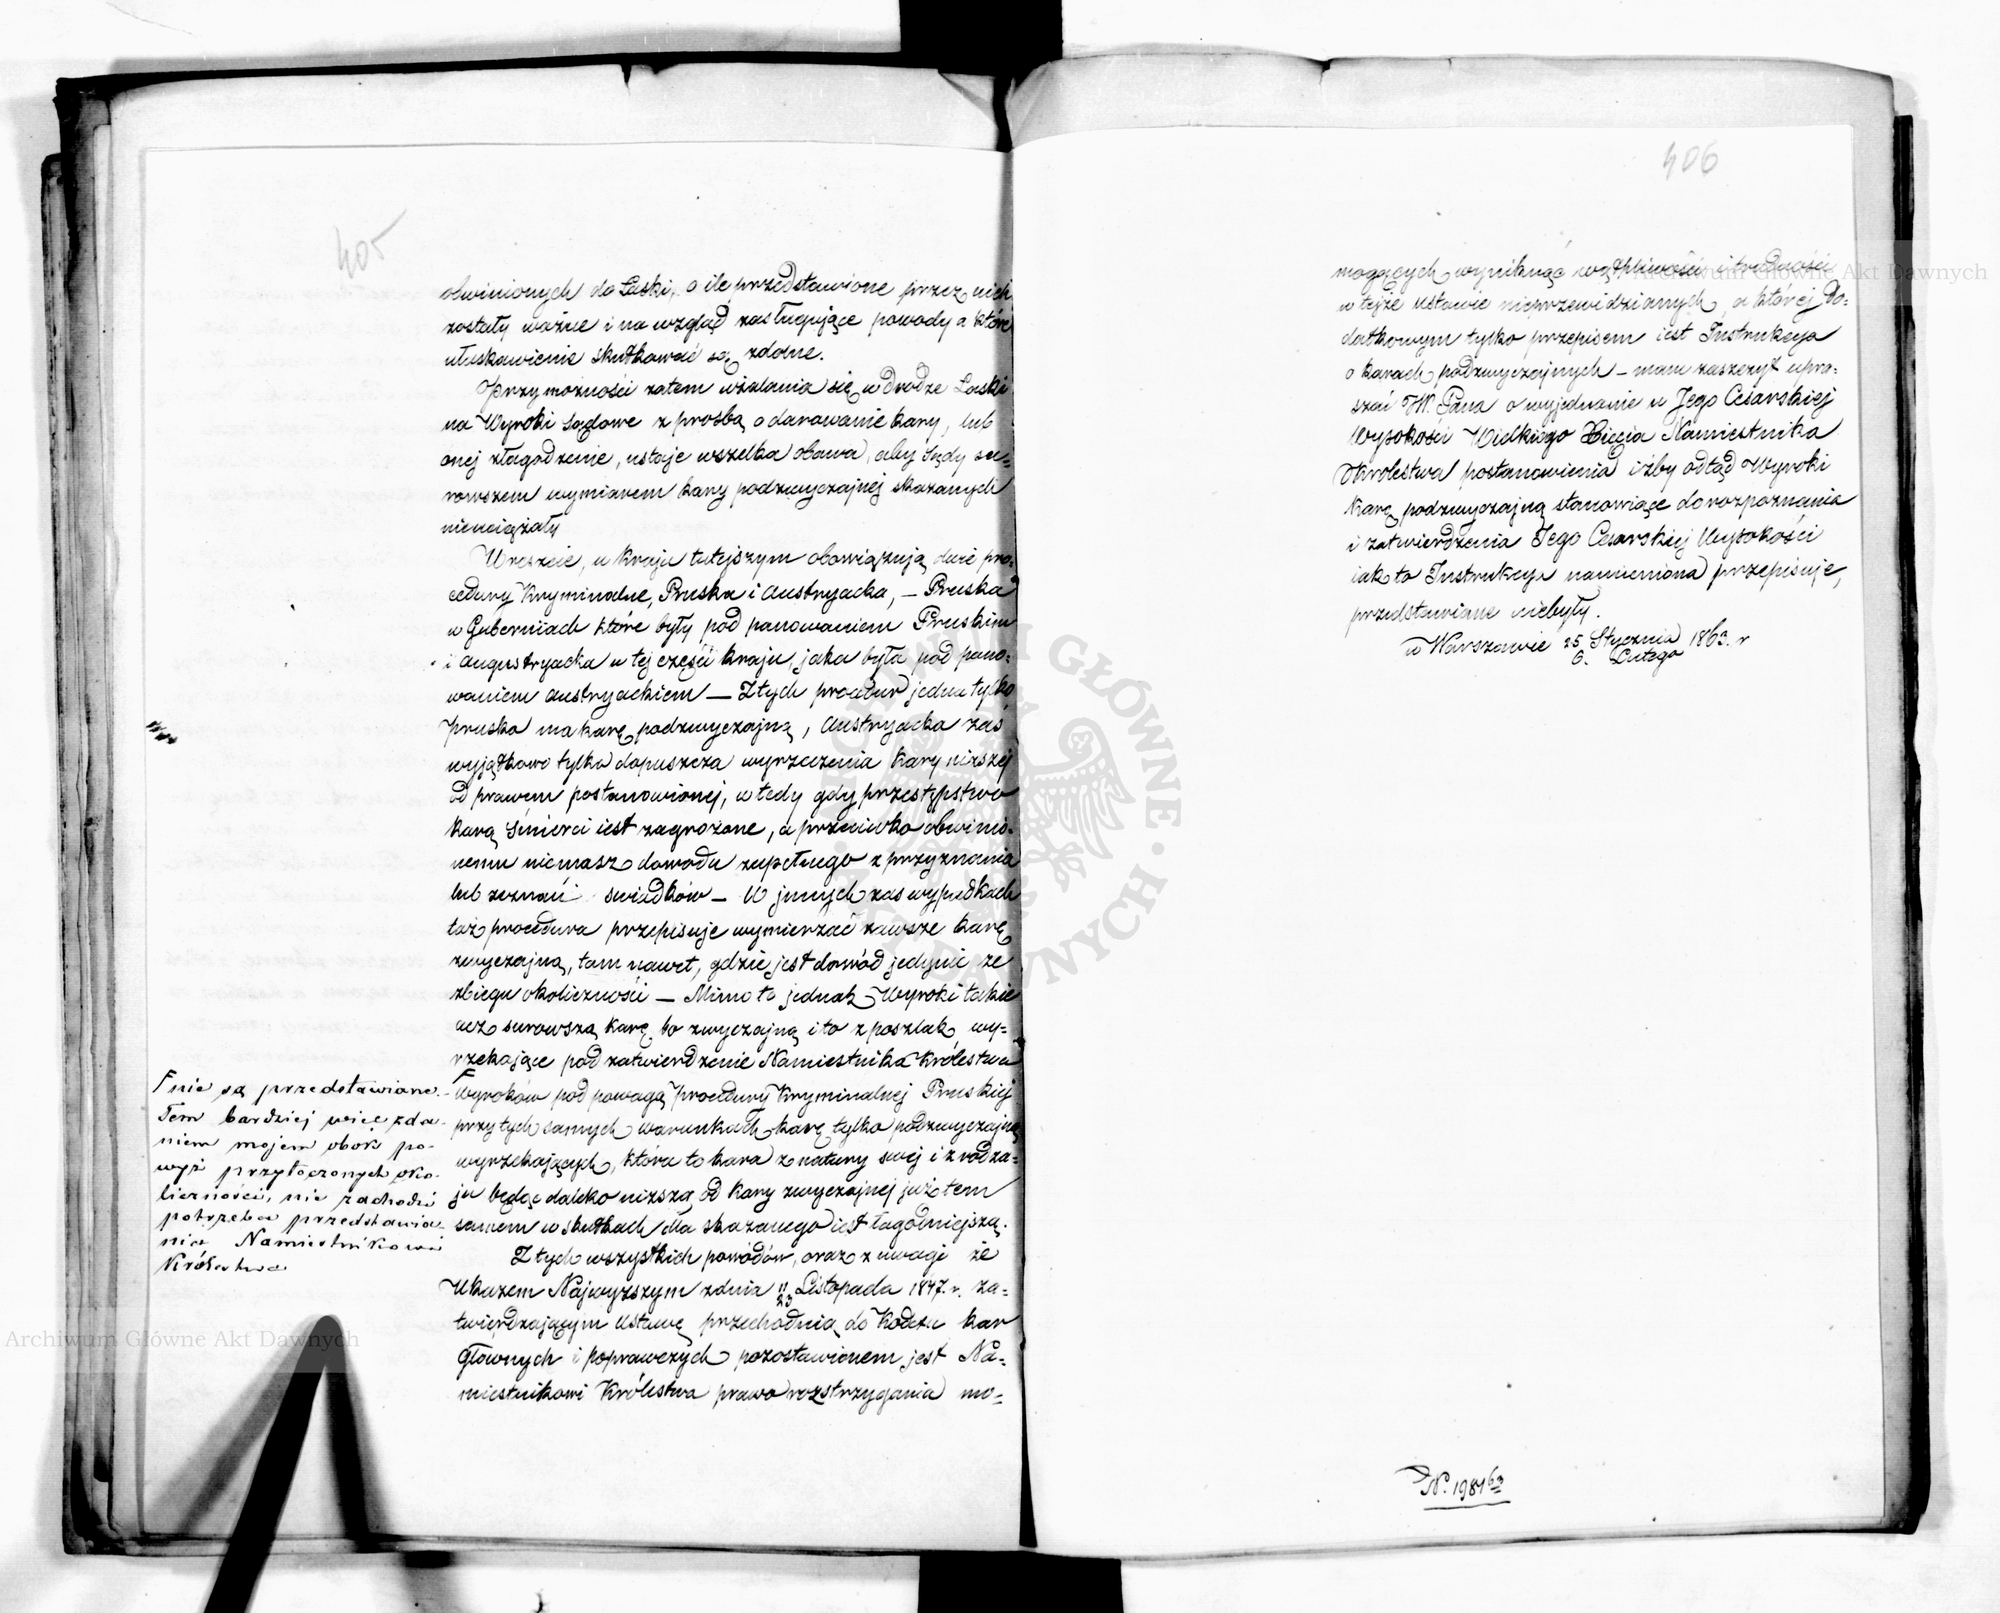 405
obwinionych do Łaski, o ile przedstawione przez nich
zostały ważne i na wzgląd zasługujące powody a które
ułaskawienie skutkować są zdolne.
Przy możności zatem użalania się w drodze Łaski
na Wyroki sądowe z prośbą o darowanie kary, lub
onej złagodzenie, ustaje wszelka obawa, aby Sądy su=
rowszem wymiarem kary podzwyczajnej skazanych
nieuciążały
Wreszcie, w Kraju tutejszym obowiązują dwie pro=
cedury Kryminalne, Pruska i Austryacka, – Pruska
w Guberniach które były pod panowaniem Pruskim
i augustryacka w tej części kraju, jaka była pod pano=
waniem austryackiem — Z tych procedur jedna tylko
pruska ma karę podzwyczajną, Austryacka zas
wyjątkowo tylko dopuszcza wyrzeczenia Kary niższej
od prawem postanowionej, wtedy gdy przestępstwo
karą śmierci iest zagrożone, a przeciwko obwinio=
nemu niemasz dowodu zupełnego z przyznania
lub zeznań swiadków – W innych zas wypadkach
taż procedura przepisuje wymierzać zawsze karę
zwyczajną, tam nawet, gdzie jest dowód jedynie ze
zbiegu okoliczności — Mimo to jednak Wyroki takie
acz surowszą karę, bo zwyczajną i to z poszlak wy=
rzekające pod zatwierdzenie Namiestnika Królestwa
Wyroków pod powagą procedury Kryminalnej Pruskiej
przy tych samych warunkach karę tylko podzwyczajną
wyrzekających, która to kara z natury swej i z rodza=
ju będąc daleko niższą od kary zwyczajnej już tem
samem w skutkach dla skazanego iest łagodniejszą.
Z tych wszystkich powodów, oraz z uwagi że
Ukazem Najwyższym z dnia 11/23 Listopada 1847. r. za=
twierdzającym Ustawę przechodnią do Kodexu kar
Głownych i poprawczych pozostawionem jest Na=
miestnikowi Królestwa prawo rozstrzygania mo=
nie są przedstawiane.
Tem bardziej więc zda=
niem mojem obok po=
wyż przytoczonych oko=
liczności, nie zachodzi
potrzeba przedstawia=
nia Namiestnikowi
Królestwa
406
mogących wyniknąć wątpliwości i trudności
w tejże Ustawie nieprzewidzianych, a której do=
datkowym tylko przepisem iest Instrukcya
o karach podzwyczajnych – mam zaszczyt upra=
szać JW. Pana o wyjednanie u Jego Cesarskiej
Wysokości Wielkiego Xięcia Namiestnika
Królestwa postanowienia iżby odtąd Wyroki
Karę podzwyczajną stanowiące do rozpoznania
i zatwierdzenia Jego Cesarskiej Wysokości
iak to Instrukcya namieniona przepisuje,
przedstawiane niebyły.
w Warszawie 25 Stycznia / 6. Lutego 1863. r
N. 1981/63
Archiwum Główne Akt Dawnych
Archiwum Główne Akt Dawnych